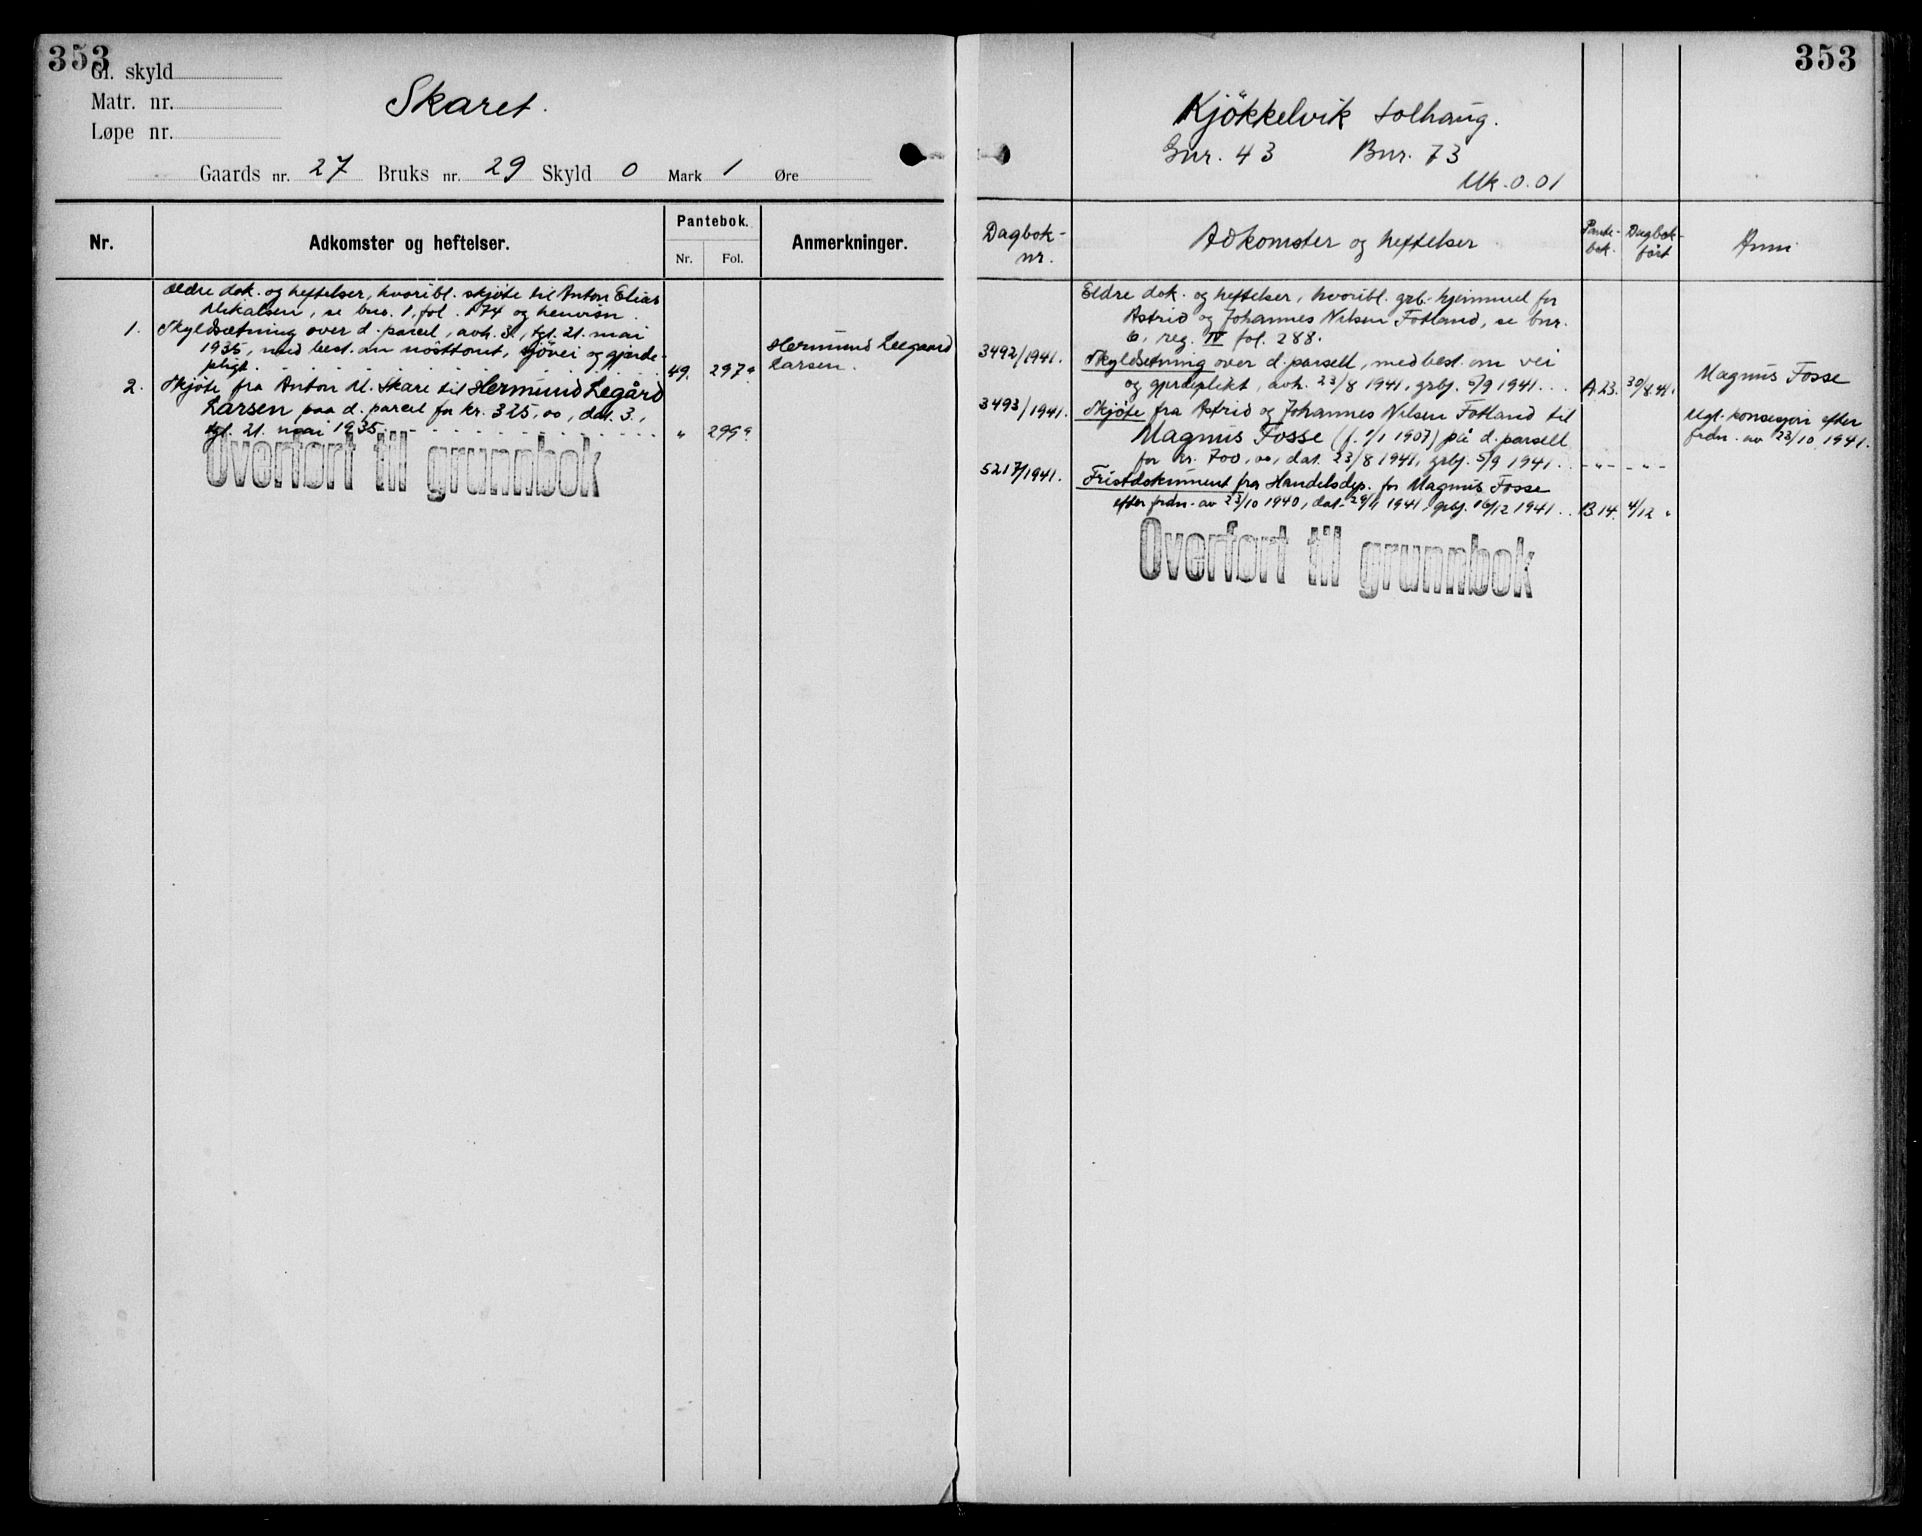 353
Gl. skyld
Matr. nr.
Løpe nr.
Skaret.
Gaards nr. 27 Bruks nr. 29 Skyld 0 Mark 1 Øre
Nr.
Adkomster og heftelser.
Pantebok.
Nr. Fol.
Anmerkninger.
Ældre dok. og heftelser, hvoribl. skjöte til Anton Elias
Mikalsen, se bnr. 1, fol. 174 og henvisn.
1. Skyldsætning over d. parcel, avh. 3., tgl. 21. mai
1935, med best. om nösttomt, sjövei og gjærde-
pligt. 49. 297a
Hermund Leegaard
Larsen.
2. Skjöte fra Anton M. Skare til Hermund Legård
Larsen paa d. parcel for kr. 325,00, dat. 3.,
tgl. 21. mai 1935. " 299a
Overført til grunnbok
353
Kjökkelvik Solhaug.
Gnr. 43 Bnr. 73
Mk. 0.01
Dagbok-
nr.
Adkomster og heftelser
Pante-
bok.
Dagbok-
fört
Anm.
Eldre dok. og heftelser, hvoribl. grb. hjemmel for
Astrid og Johannes Nilsen Fotland, se bnr.
6, reg. IV fol. 288.
3492/1941. Skyldsetning over d. parsell, med best. om vei
og gjerdeplikt, avh. 23/8 1941, grbf. 5/9 1941. A.23. 30/8.41.
Magnus Fosse
3493/1941. Skjöte fra Astrid og Johannes Nilsen Fotland til
Magnus Fosse (f. 1/1 1907) på d. parsell
for kr. 700,00, dat. 23/8 1941, grbf. 5/9 1941. - " - - " -
Ugl. konsesjon efter
frdn. av 23/10 1941.
5217/1941. Fristdokument fra Handelsdep. for Magnus Fosse
efter frdn. av 23/10 1940, dat. 29/11 1941, grbf. 16/12 1941. B 14. 4/12 "
Overført til grunnbok